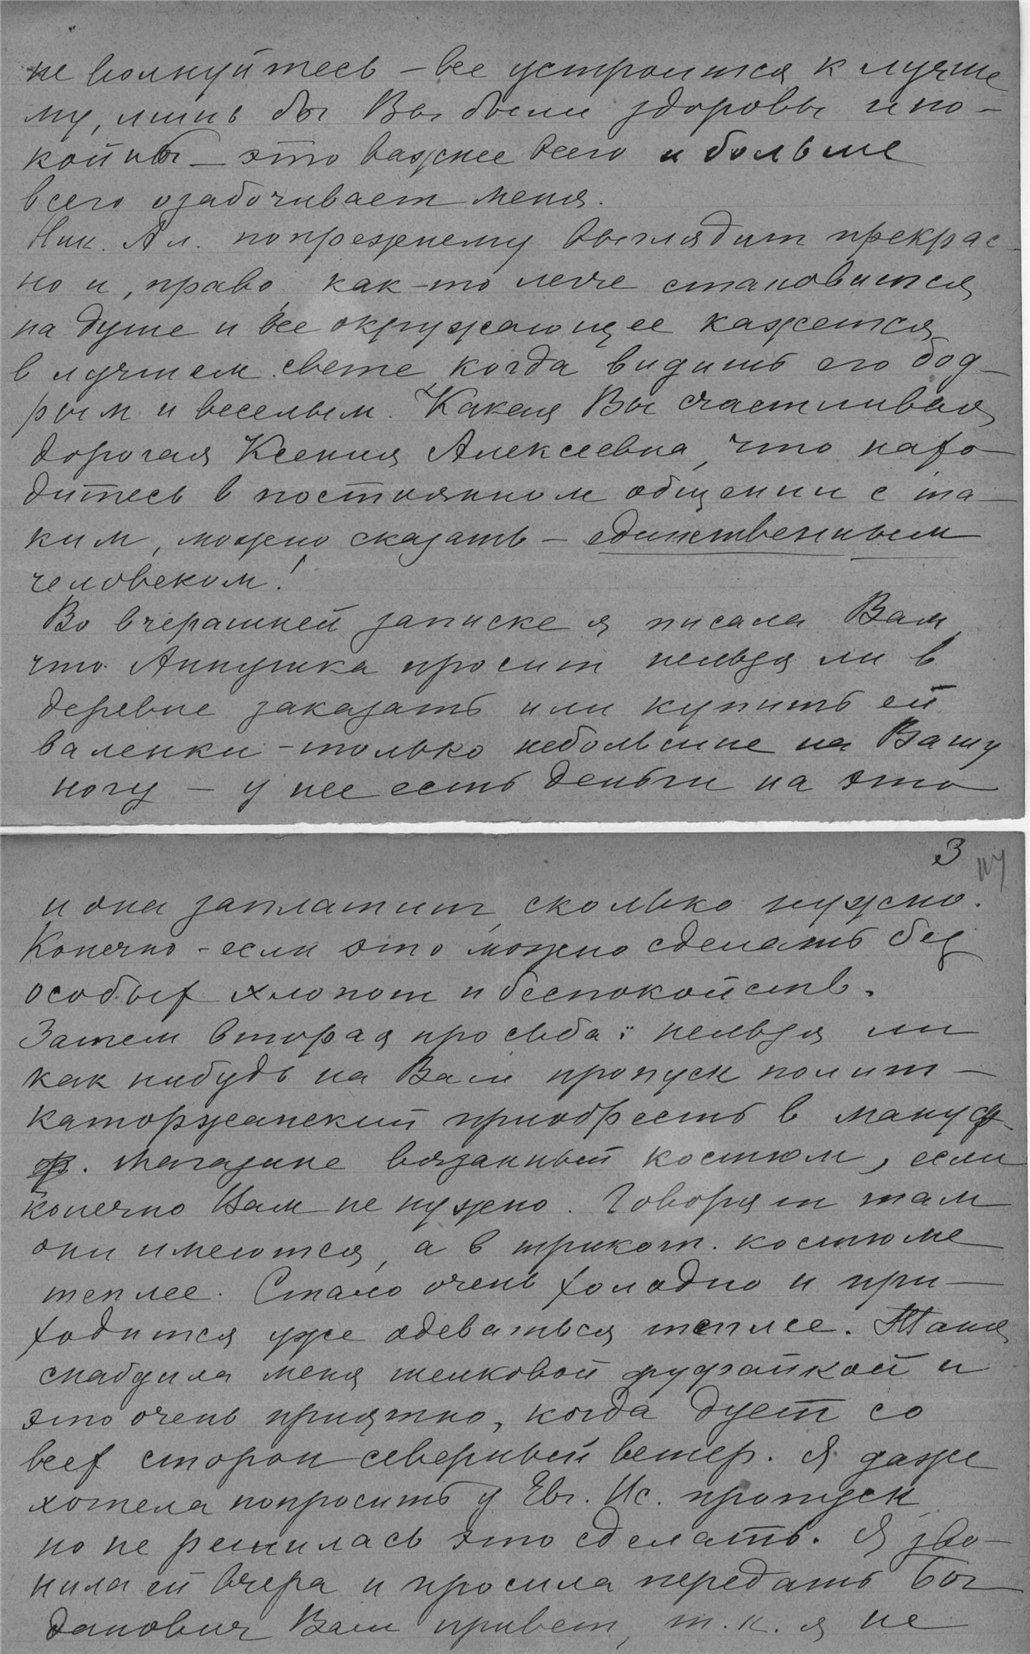 не волнуйтесь – все устроится к лучше
му, лишь бы Вы были здоровы и по–
койны – это важнее всего и больше
всего озабочивает меня.
Ник. Ал. попрежнему выглядит прекрас–
но и, право, как-то легче становится
на душе и все окружающее кажется
в лучшем свете когда видишь его бод–
рым и веселым. Какая Вы счастливая,
дорогая Ксения Алексеевна, что нахо–
дитесь в постоянном общении с та–
ким, можно сказать – единственным
человеком!
Во вчерашней записке я писала Вам,
что Аннушка просит нельзя ли в
деревне заказать или купить ей
валенки – только небольшие на Вашу
ногу – у нее есть деньги на это
3
и она заплатит, сколько нужно.
Конечно – если это можно сделать без
особых хлопот и беспокойств.
Затем вторая просьба: нельзя ли
как нибудь на Ваш пропуск полит–
каторжанский приобресть в мануф.
магазине вязанный костюм, если
конечно Вам не нужно. Говорят там
они имеются, а в трикот. костюме
теплее. Стало очень холодно и при–
ходится уже одеваться теплее. Таня
снабдила меня шелковой фуфайкой и
это очень приятно, когда дует со
всех сторон северный ветер. Я даже
хотела попросить у Евг. Ис. пропуск
но не решилась это сделать. Я зво–
нила ей вчера и просила передать Бог
данович Вам привет, т.к. я не